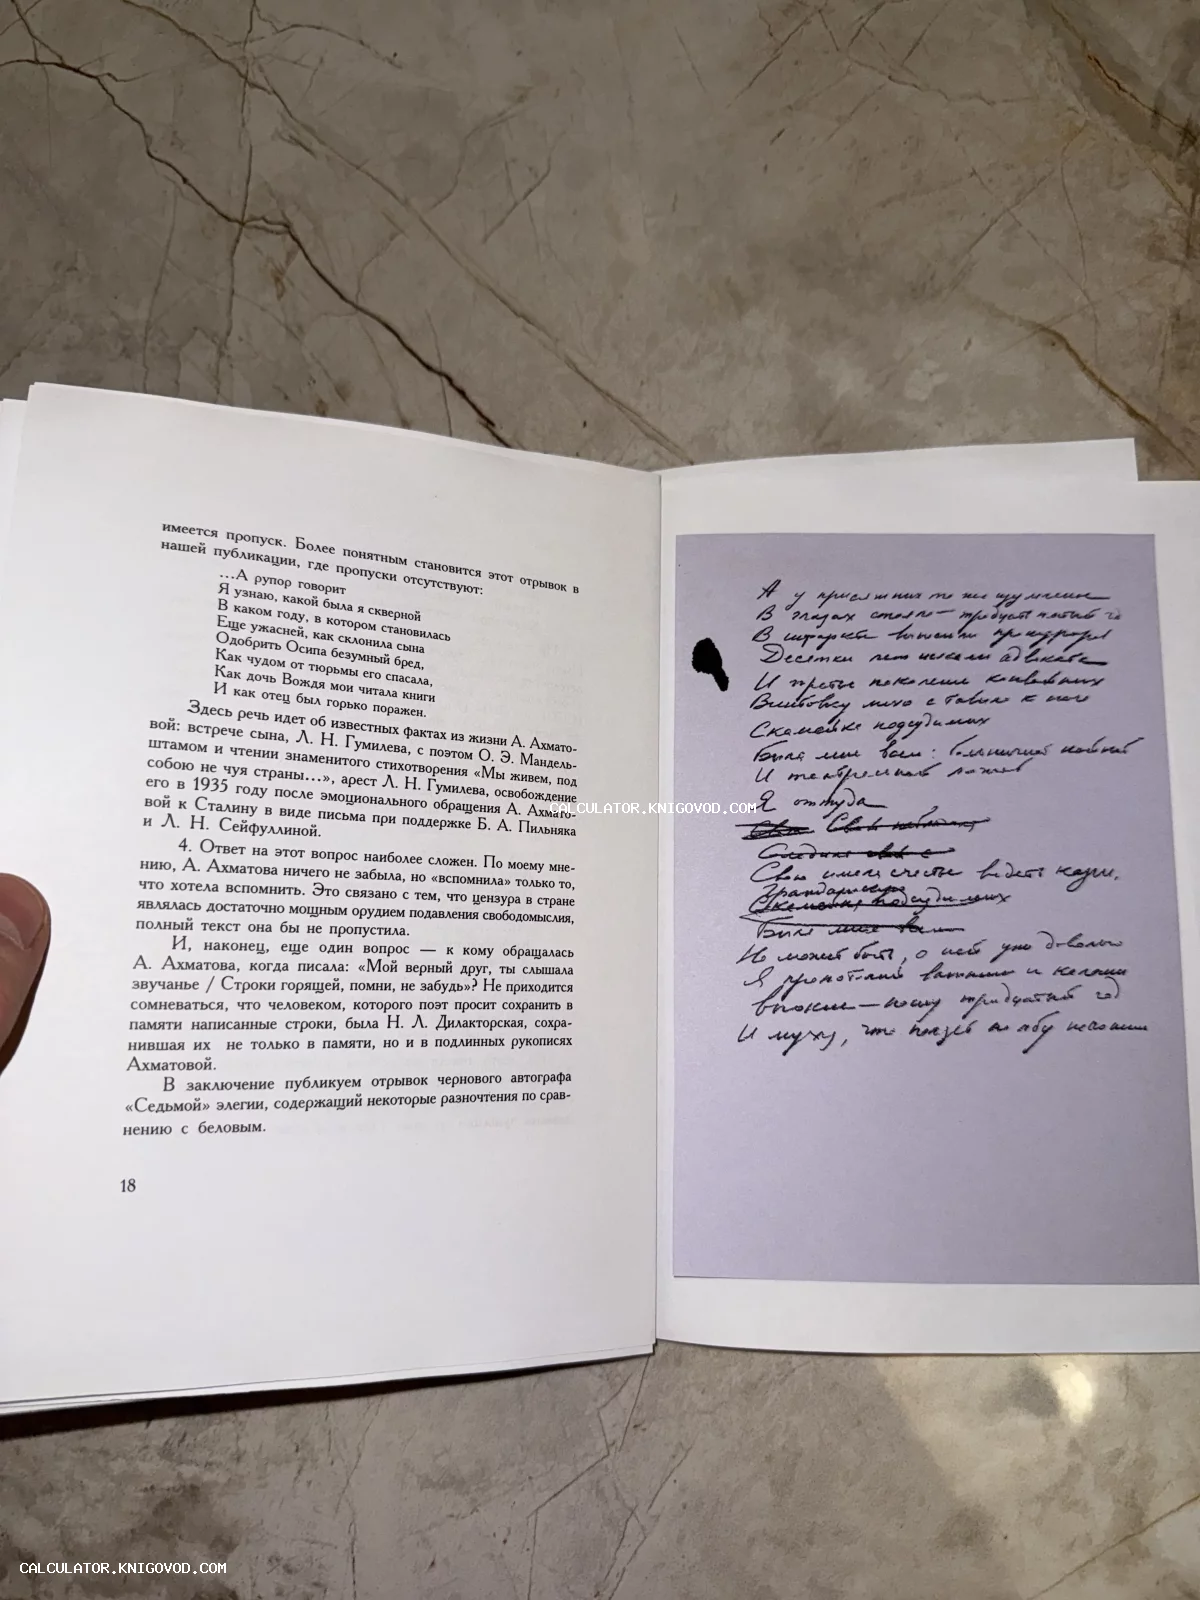 имеется пропуск. Более понятным становится этот отрывок в
нашей публикации, где пропуски отсутствуют:
...А рупор говорит
Я узнаю, какой была я скверной
В каком году, в котором становилась
Еще ужасней, как склонила сына
Одобрить Осипа безумный бред,
Как чудом от тюрьмы его спасала,
Как дочь Вождя мои читала книги
И как отец был горько поражен.
Здесь речь идет об известных фактах из жизни А. Ахмато-
вой: встрече сына, Л. Н. Гумилева, с поэтом О. Э. Мандель-
штамом и чтении знаменитого стихотворения «Мы живем, под
собою не чуя страны...», арест Л. Н. Гумилева, освобождение
его в 1935 году после эмоционального обращения А. Ахмато-
вой к Сталину в виде письма при поддержке Б. А. Пильняка
и Л. Н. Сейфуллиной.
4. Ответ на этот вопрос наиболее сложен. По моему мне-
нию, А. Ахматова ничего не забыла, но «вспомнила» только то,
что хотела вспомнить. Это связано с тем, что цензура в стране
являлась достаточно мощным орудием подавления свободомыслия,
полный текст она бы не пропустила.
И, наконец, еще один вопрос — к кому обращалась
А. Ахматова, когда писала: «Мой верный друг, ты слышала
звучанье / Строки горящей, помни, не забудь»? Не приходится
сомневаться, что человеком, которого поэт просит сохранить в
памяти написанные строки, была Н. Л. Дилакторская, сохра-
нившая их не только в памяти, но и в подлинных рукописях
Ахматовой.
В заключение публикуем отрывок чернового автографа
«Седьмой» элегии, содержащий некоторые разночтения по срав-
нению с беловым.
18
А у присяжных то же изумленье
В глазах стояло — тридцать пятый
В инфаркте прокуроров
Десятки лет адвокаты
И третье поколение конвойных
Винтовку ставило к ноге
Скамейка подсудимых
Была мне всем: больничной койкой
И театральной ложей
Я оттуда
Свою имела счастье видеть казнь.
Гражданскую
Скамейка подсудимых
Была мне всем
Но может быть, о ней уже довольно
Я
— тридцатый год
И муху, что ползёт по лбу
CALCULATOR.KNIGOVOD.COM
CALCULATOR.KNIGOVOD.COM